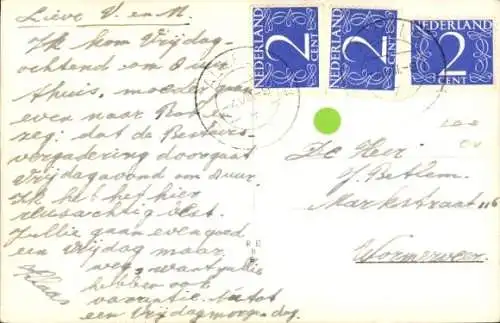 Lieve V. en M.
Ik kom Vrijdag-
ochtend om 8 uur
thuis, moeder gaan
even naar
zeg: dat de Bestuurs-
vergadering doorgaat
Vrijdagavond om 8 uur.
Ik heb het hier
reusachtig
Jullie gaan evengoed
een Vrijdag maar
weg, want jullie
hebben ook
vacantie. Nu tot
een Vrijdagmorgen. dag.
Klaas
NEDERLAND
2
CENT
NEDERLAND
2
CENT
NEDERLAND
2
CENT
De Heer
J. Betlem.
Markstraat 116
Wormerveer.
R E